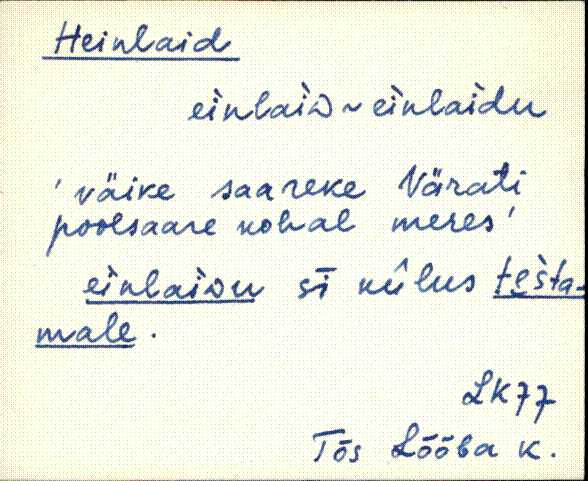 Heinlaid
èinlàiᴅ ~ èinlaidu
'väike saareke Värati
poolsaare kohal meres'
èinlàiᴅu sī küĺus tešta-
male.
LK77
Tõs Lõõba k.